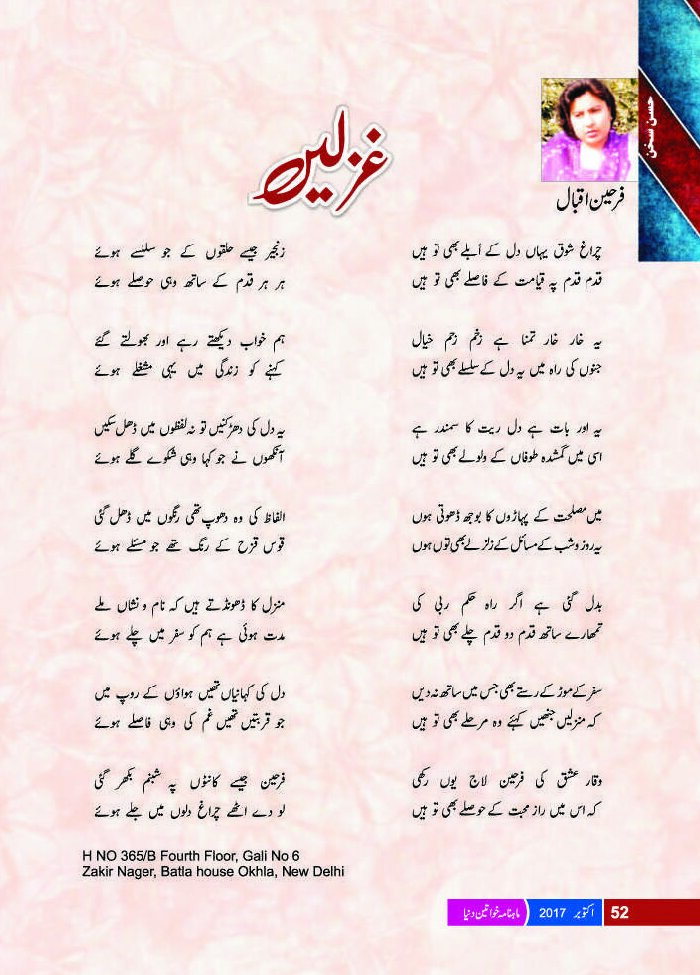 حسن سخن
غزلیں
فرحین اقبال
چراغ شوق یہاں دل کے آبلے بھی تو ہیں
قدم قدم پہ قیامت کے فاصلے بھی تو ہیں
یہ خار خار تمنا ہے زخم زخم خیال
جنوں کی راہ میں یہ دل کے سلسلے بھی تو ہیں
یہ اور بات ہے دل ریت کا سمندر ہے
اسی میں گمشدہ طوفاں کے ولولے بھی تو ہیں
میں مصلحت کے پہاڑوں کا بوجھ ڈھوتی ہوں
یہ روز و شب کے مسائل کے زلزلے بھی توں ہوں
بدل گئی ہے اگر راہ حکم ربی کی
تمھارے ساتھ قدم دو قدم چلے بھی تو ہیں
سفر کے موڑ کے رستے بھی جس میں ساتھ نہ دیں
کہ منزلیں جنھیں کہئے وہ مرحلے بھی تو ہیں
وقار عشق کی فرحین لاج یوں رکھی
کہ اس میں راز محبت کے حوصلے بھی تو ہیں
زنجیر جیسے حلقوں کے جو سلسلے ہوئے
ہر ہر قدم کے ساتھ وہی حوصلے ہوئے
ہم خواب دیکھتے رہے اور بھولتے گئے
کہنے کو زندگی میں یہی مشغلے ہوئے
یہ دل کی دھڑکنیں تو نہ لفظوں میں ڈھل سکیں
آنکھوں نے جو کہا وہی شکوے گلے ہوئے
الفاظ کی وہ دھوپ تھی رنگوں میں ڈھل گئی
قوس قزح کے رنگ تھے جو مسئلے ہوئے
منزل کا ڈھونڈتے ہیں کہ نام و نشاں ملے
مدت ہوئی ہے ہم کو سفر میں چلے ہوئے
دل کی کہانیاں تھیں ہواؤں کے روپ میں
جو قربتیں تھیں غم کی وہی فاصلے ہوئے
فرحین جیسے کانٹوں پہ شبنم بکھر گئی
لو دے اٹھے چراغ دلوں میں جلے ہوئے
H NO 365/B Fourth Floor, Gali No 6
Zakir Nager, Batla house Okhla, New Delhi
52 اکتوبر 2017 ماہنامہ خواتین دنیا